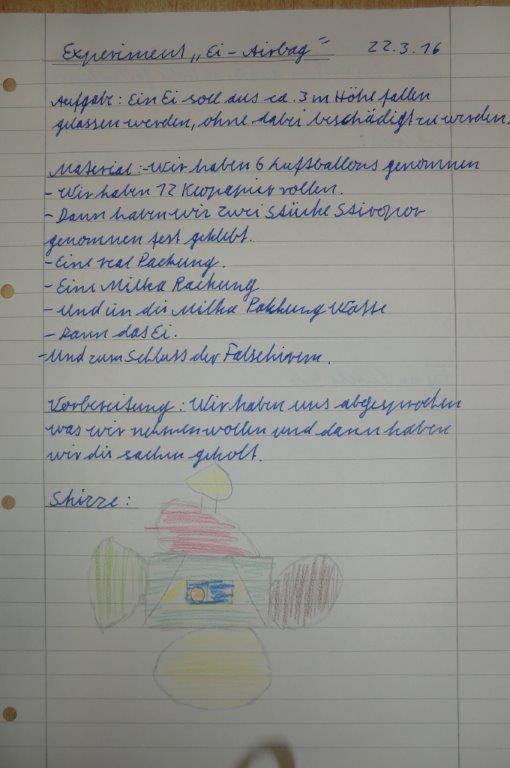 Experiment „Ei-Airbag" 22.3.16
Aufgabe: Ein Ei soll aus ca. 3 m Höhe fallen
gelassen werden, ohne dabei beschädigt zu werden.
Material: - Wir haben 6 Luftballons genommen
- Wir haben 12 Klopapier rollen.
- Dann haben wir zwei Stücke Stiropor
genommen fest geklebt.
- Eine real Packung.
- Eine Milka Packung
- Und in die Milka Packung Watte
- Dann das Ei.
- Und zum Schluss der Falschirem.
Vorbereitung: Wir haben uns abgesprochen
was wir nehmen wollen und dann haben
wir die sachen geholt.
Skizze: